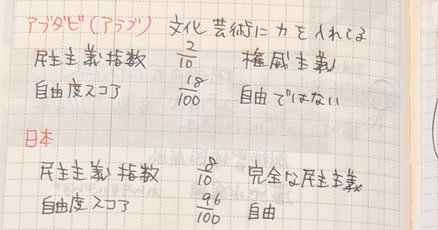 アブダビ(アラブ) 文化芸術に力を入れてる
民主主義指数 2/10 権威主義
自由度スコア 18/100 自由ではない
日本
民主主義指数 8/10 完全な民主主義
自由度スコア 96/100 自由